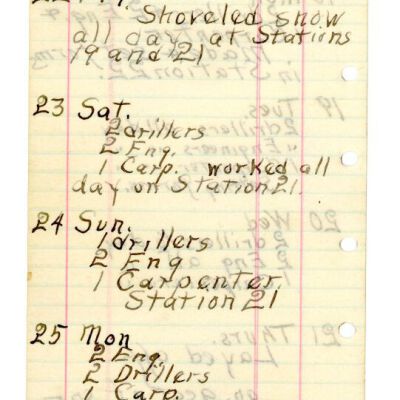 Shoveled snow
all day at Stations
19 and 21
23 Sat.
2 drillers
2 Eng.
1 Carp. worked all
day on Station 21.
24 Sun.
1 drillers
2 Eng
1 Carpenter.
Station 21
25 Mon
2 Eng.
2 Drillers
1 Carp.